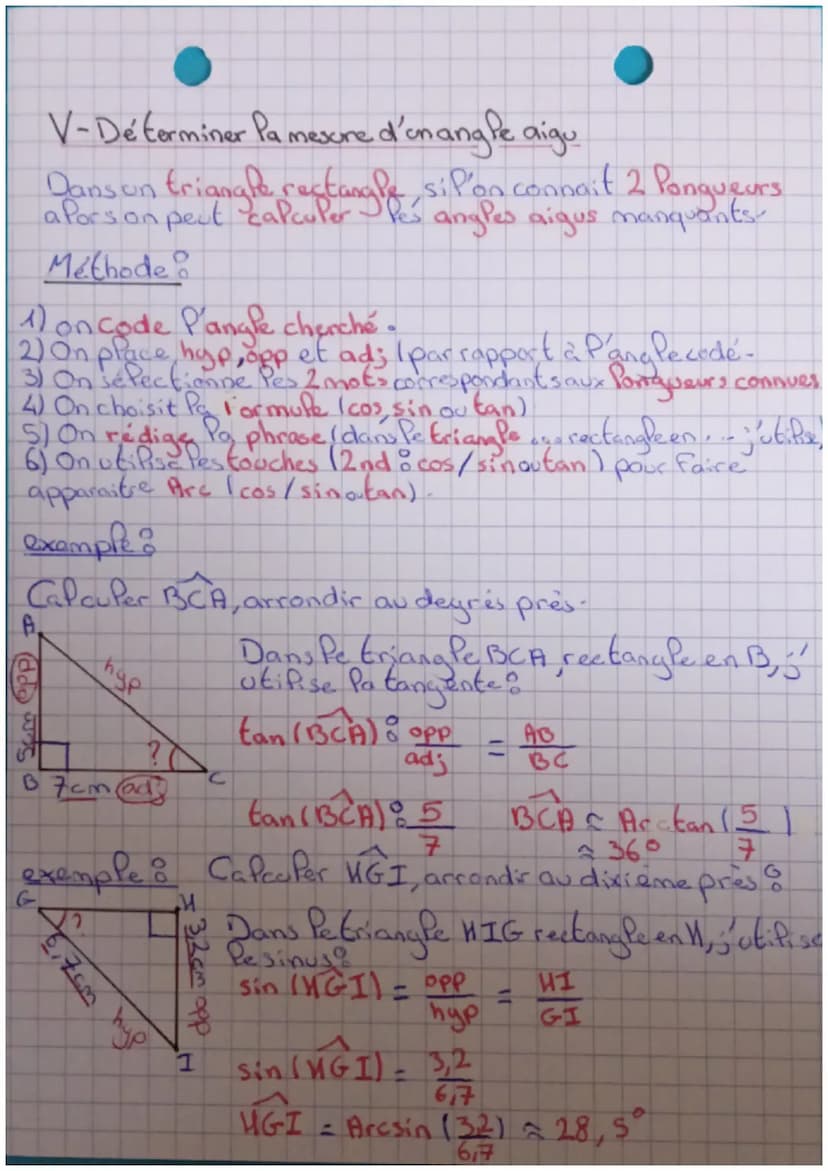 V-Déterminer la mesure d'un angle aigu
Dans un triangle rectangle, si l'on connait 2 longueurs
alors on peut calculer les angles aigus manquants.
Méthode :
1) on code l'angle cherché.
2) On place hyp, opp et adj (par rapport à l'angle codé.
3) On sélectionne les 2 mots correspondants aux longueurs connues
4) On choisit la formule (cos, sin ou tan)
5) On rédige la phrase (dans le triangle ... rectangle en ... j'utilise)
6) On utilise les touches (2nd : cos/sin ou tan) pour faire
apparaitre Arc (cos/sin ou tan).
example :
Calculer BCA, arrondir au degrés près.
A
opp
hyp
5cm
?
B 7cm adj
C
Dans le triangle BCA, rectangle en B, j'
utilise la tangente :
tan (BCA) : opp/adj = AB/BC
tan (BCA) : 5/7 BCA = Arctan (5/7)
≈ 36°
example : Calculer HGI, arrondir au dixième près :
G
H
?
6,7cm
hyp
3,2cm
opp
I
Dans le triangle HIG rectangle en H, j'utilise
le sinus :
sin (HGI) = opp/hyp = HI/GI
sin (HGI) = 3,2/6,7
HGI = Arcsin (3,2/6,7) ≈ 28,5°